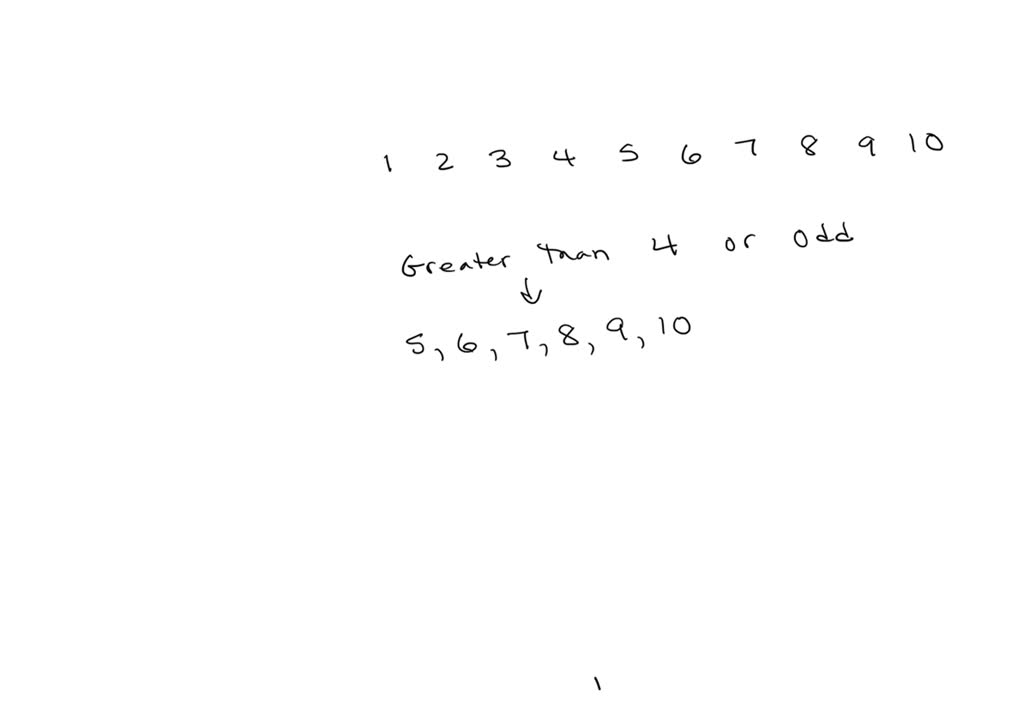 1 2 3 4 5 6 7 8 9 10
Greater than 4 or odd
↓
5, 6, 7, 8, 9, 10